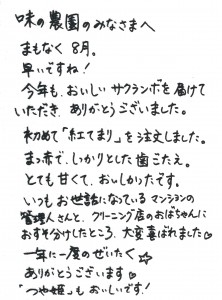 味の農園のみなさまへ
まもなく 8月。
早いですね!
今年も、おいしい サクランボを届けて
いただき、ありがとうございました。
初めて「紅てまり」を注文しました。
まっ赤で、しっかりとした歯ごたえ。
とても甘くて、おいしかったです。
いつもお世話になっている マンションの
管理人さんと、クリーニング店のおばちゃんに
おすそ分けしたところ、大変喜ばれました♡
一年に一度のぜいたく☆
ありがとうございます♡
「つや姫」も おいしいです!